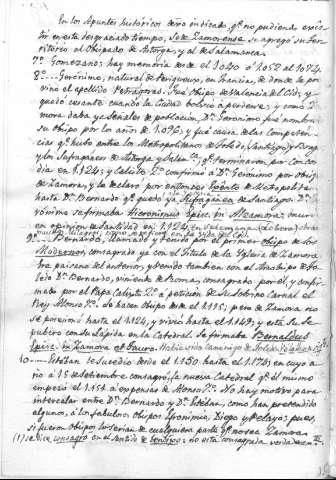 En los Apuntes históricos de no pudiendo exis
tir en este desgraciado tiempo, Sede Zamorense. Se agregó su Ter
ritorio al Obispado de Astorga, y al de Salamanca.
7º Gomezano; hay memoria de de el 1040 ó 1052 al 1074.
8º Gerónimo, natural de Perigueux, en Francia, de donde le pro
vino el apellido Petragoras. Fue Obispo de Valencia del Cid, y
quedó cesante cuando la Ciudad bolvió a perderse; y como Za
mora daba ya señales de población, Dn Geronimo fué nombra
do Obispo por los años de 1096; y fué causa de las competen
cias qe hubo entre los Metropolitanos de Toledo, Santiago y Braga
y los Sufraganeos de Astorga y Salamca, qe terminaron por Concor
dia en 1124; y Calisto 2º confirmó a Dn Geronimo por Obispo
de Zamora, y le declaró por entonces Exento de Metropolita
hasta Dn Bernardo qe quedó ya Sufraganea de Santiago: Dn Ge
ronimo se firmaba Hieronimus Epise. in Alzamora: murió
en opinion de Santidad en 1124
9º Bernardo, llamado y tenido por el primer Obispo de los
Modernos, consagrado ya con el Titulo de la Iglesia de Zamora
fue paisano del anterior, y atendido tambien con el Arzobispo de To
ledo Dn Bernardo, viniente de Roma; consagrado por él, y confir
mado por el Papa Calisto 2º a petición de su Sobrino Carnal el
Rey Alonso 7º. Se hacen Obispo desde el 1115, pero de Zamora no
se posesionó hasta el 1124, y vivió hasta el 1149, y está su Se
pulcro con su Lapida en la Catedral. Se firmaba Bernaldus
Episc. in Zamora et Tauro.
10 Esteban le sucedió desde el 1150 hasta el 1174; en cuyo a
ño á 15 de Setiembre consagró la nueva Catedral qe el mismo
empezó el 1151 a expensas de Alonso 7º. No hay motivo para
intercalar entre Dn Bernardo y Dn Esteban, como han pretendido
algunos, á los fabulosos Obispos Geronimo, Diego y Pelayo; pues,
si fueron Obispos, lo serian de cualquiera parte qe no sea Zamora